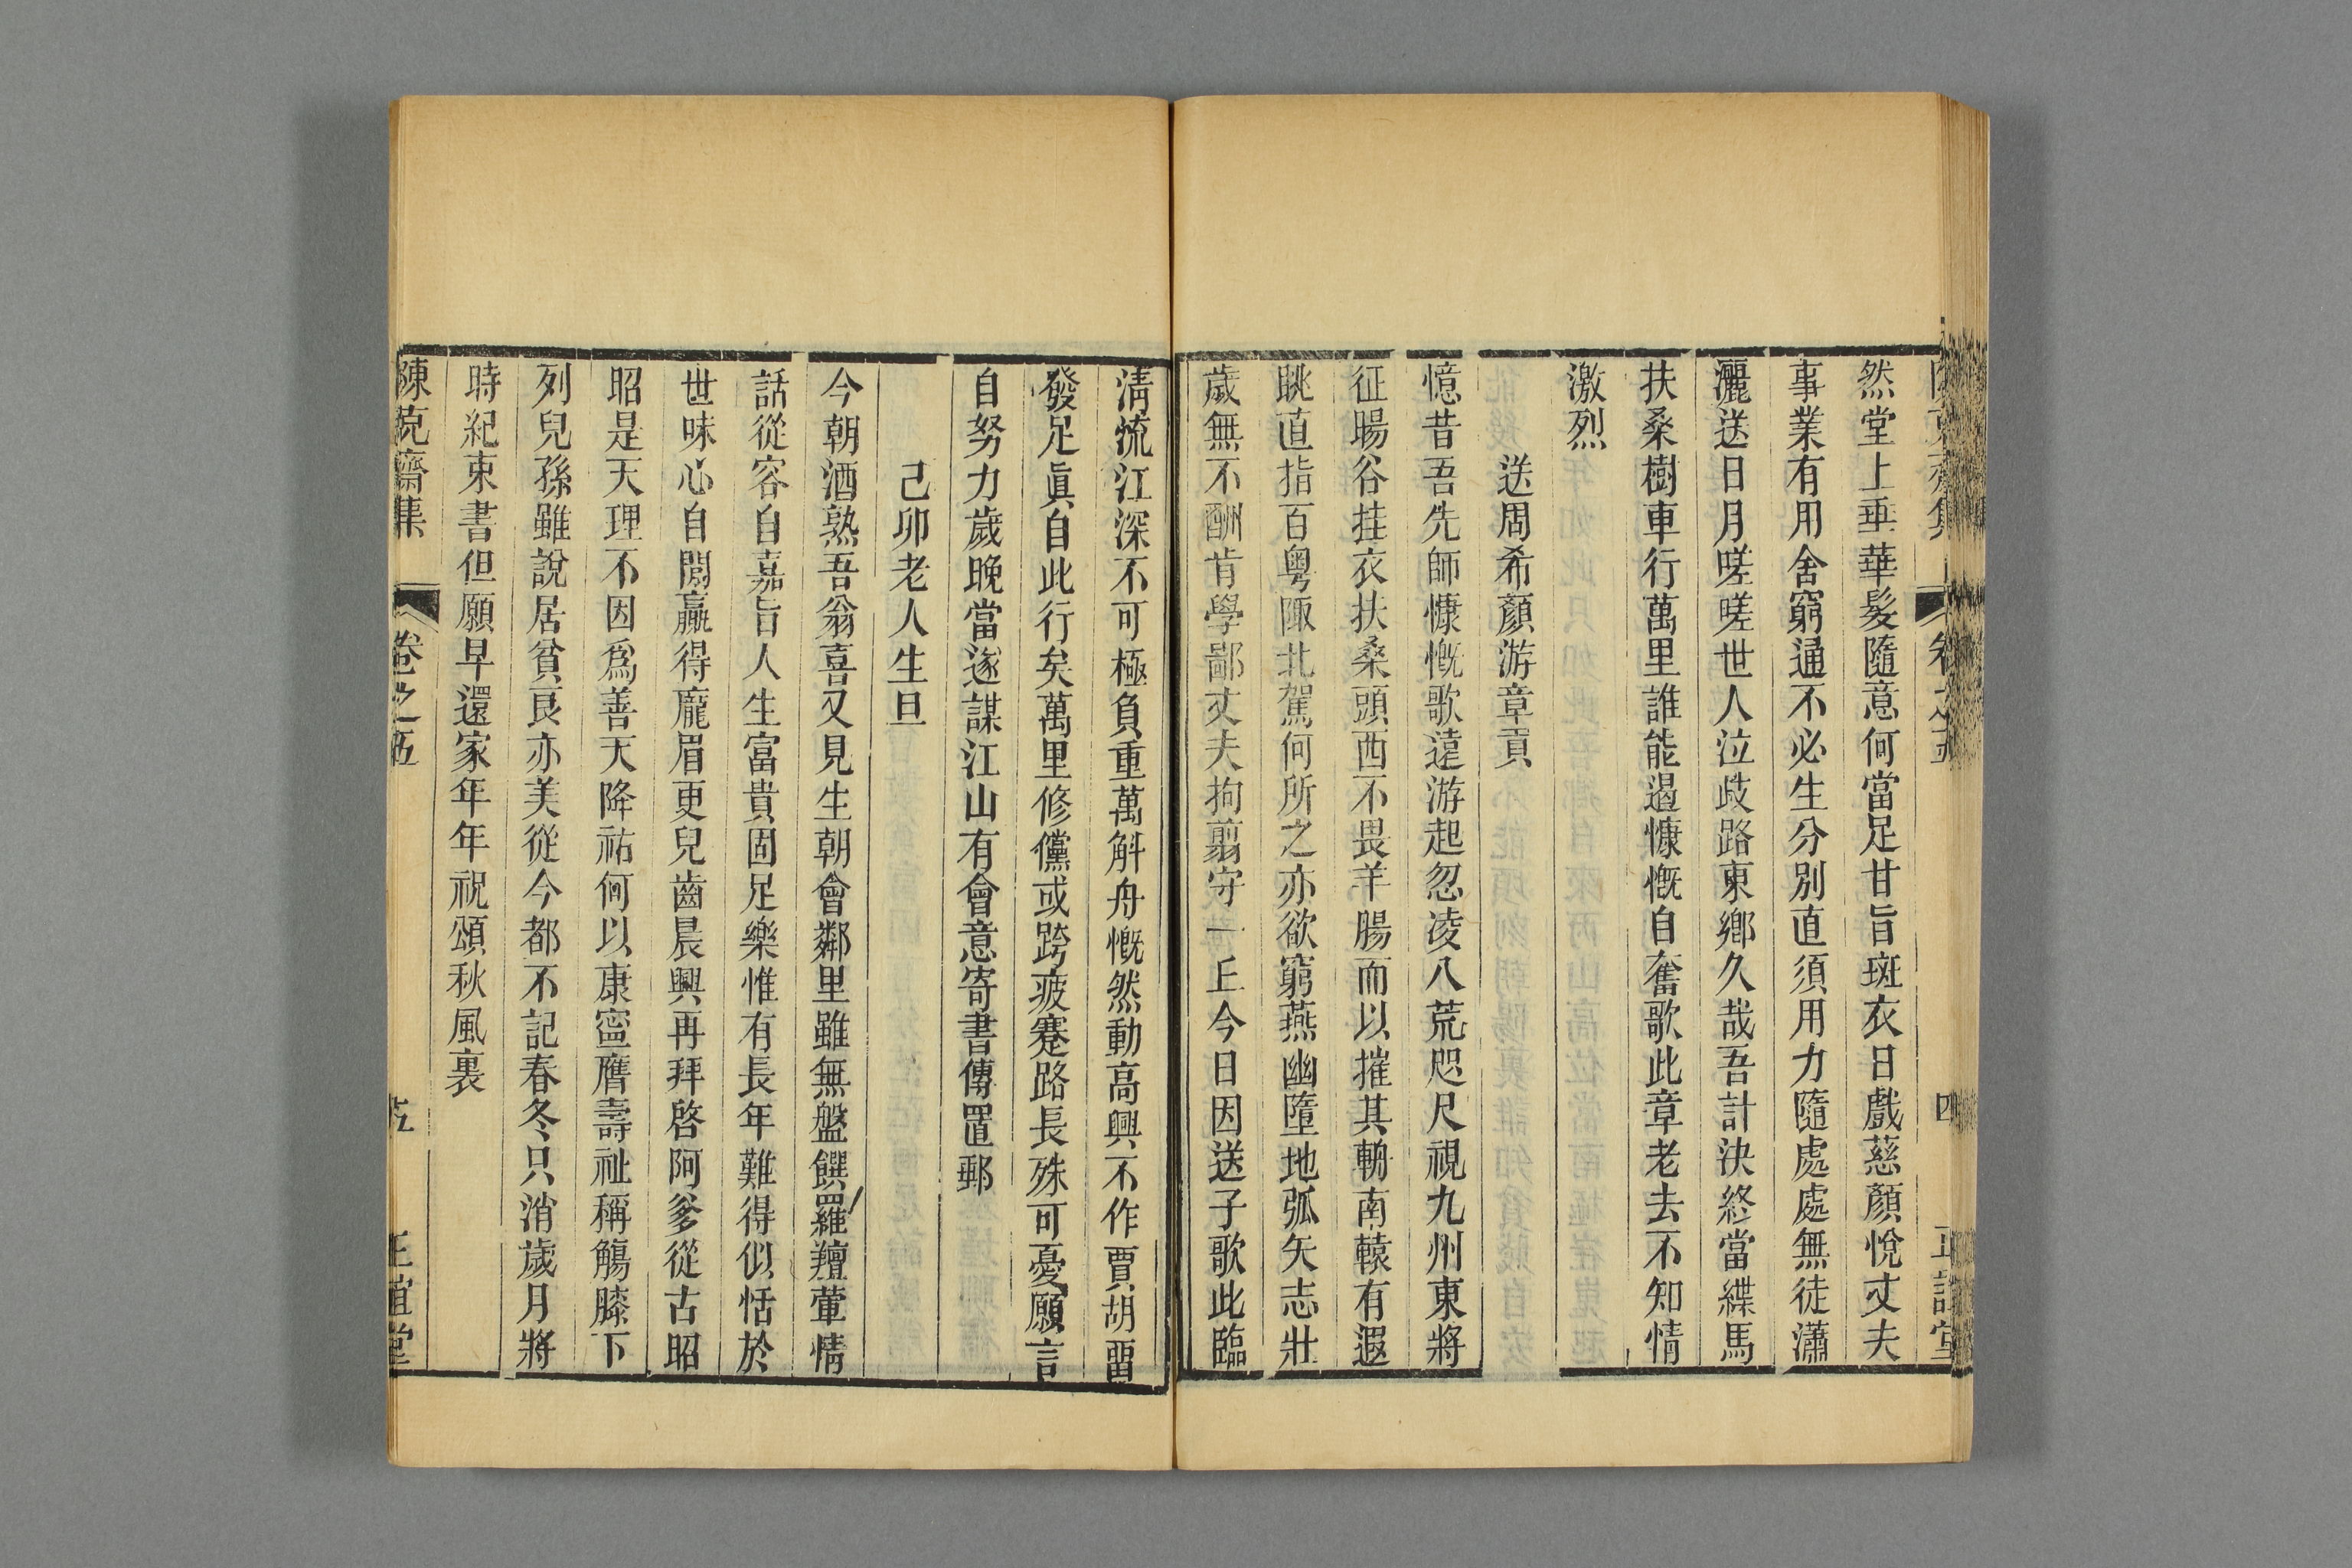 然堂上垂華髮隨意何當足甘旨斑衣日戲慈顏悅丈夫
事業有用舍窮通不必生分別直須用力隨處處無徒瀟
灑送日月嗟嗟世人泣歧路東鄉久哉吾計決終當緤馬
扶桑樹車行萬里誰能遏慷慨自奮歌此章老去不知情
激烈
送周希顏游章貢
憶昔吾先師慷慨歌遠游起忽凌八荒咫尺視九州東將
征暘谷挂衣扶桑頭西不畏羊腸而以摧其輈南轅有遐
眺直指百粵陬北駕何所之亦欲窮燕幽墮地弧矢志壯
歲無不酬肯學鄙丈夫拘翦守一丘今日因送子歌此臨
清流江深不可極負重萬斛舟慨然動高興不作賈胡畱
發足眞自此行矣萬里修儻或跨疲蹇路長殊可憂願言
自努力歲晚當遂謀江山有會意寄書傳置郵
己卯老人生旦
今朝酒熟吾翁喜又見生朝會鄰里雖無盤饌羅羶葷情
話從容自嘉旨人生富貴固足樂惟有長年難得似恬於
世味心自閒贏得龐眉更兒齒晨興再拜啓阿爹從古昭
昭是天理不因爲善天降祐何以康寍膺壽祉稱觴膝下
列兒孫雖說居貧良亦美從今都不記春冬只消歲月將
時紀束書但願早還家年年祝頌秋風裏
陳克齋集 卷之五 五 正誼堂